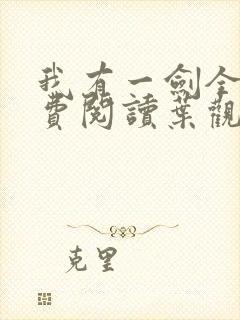 我有一劍全
費閱讀葉觀
克里